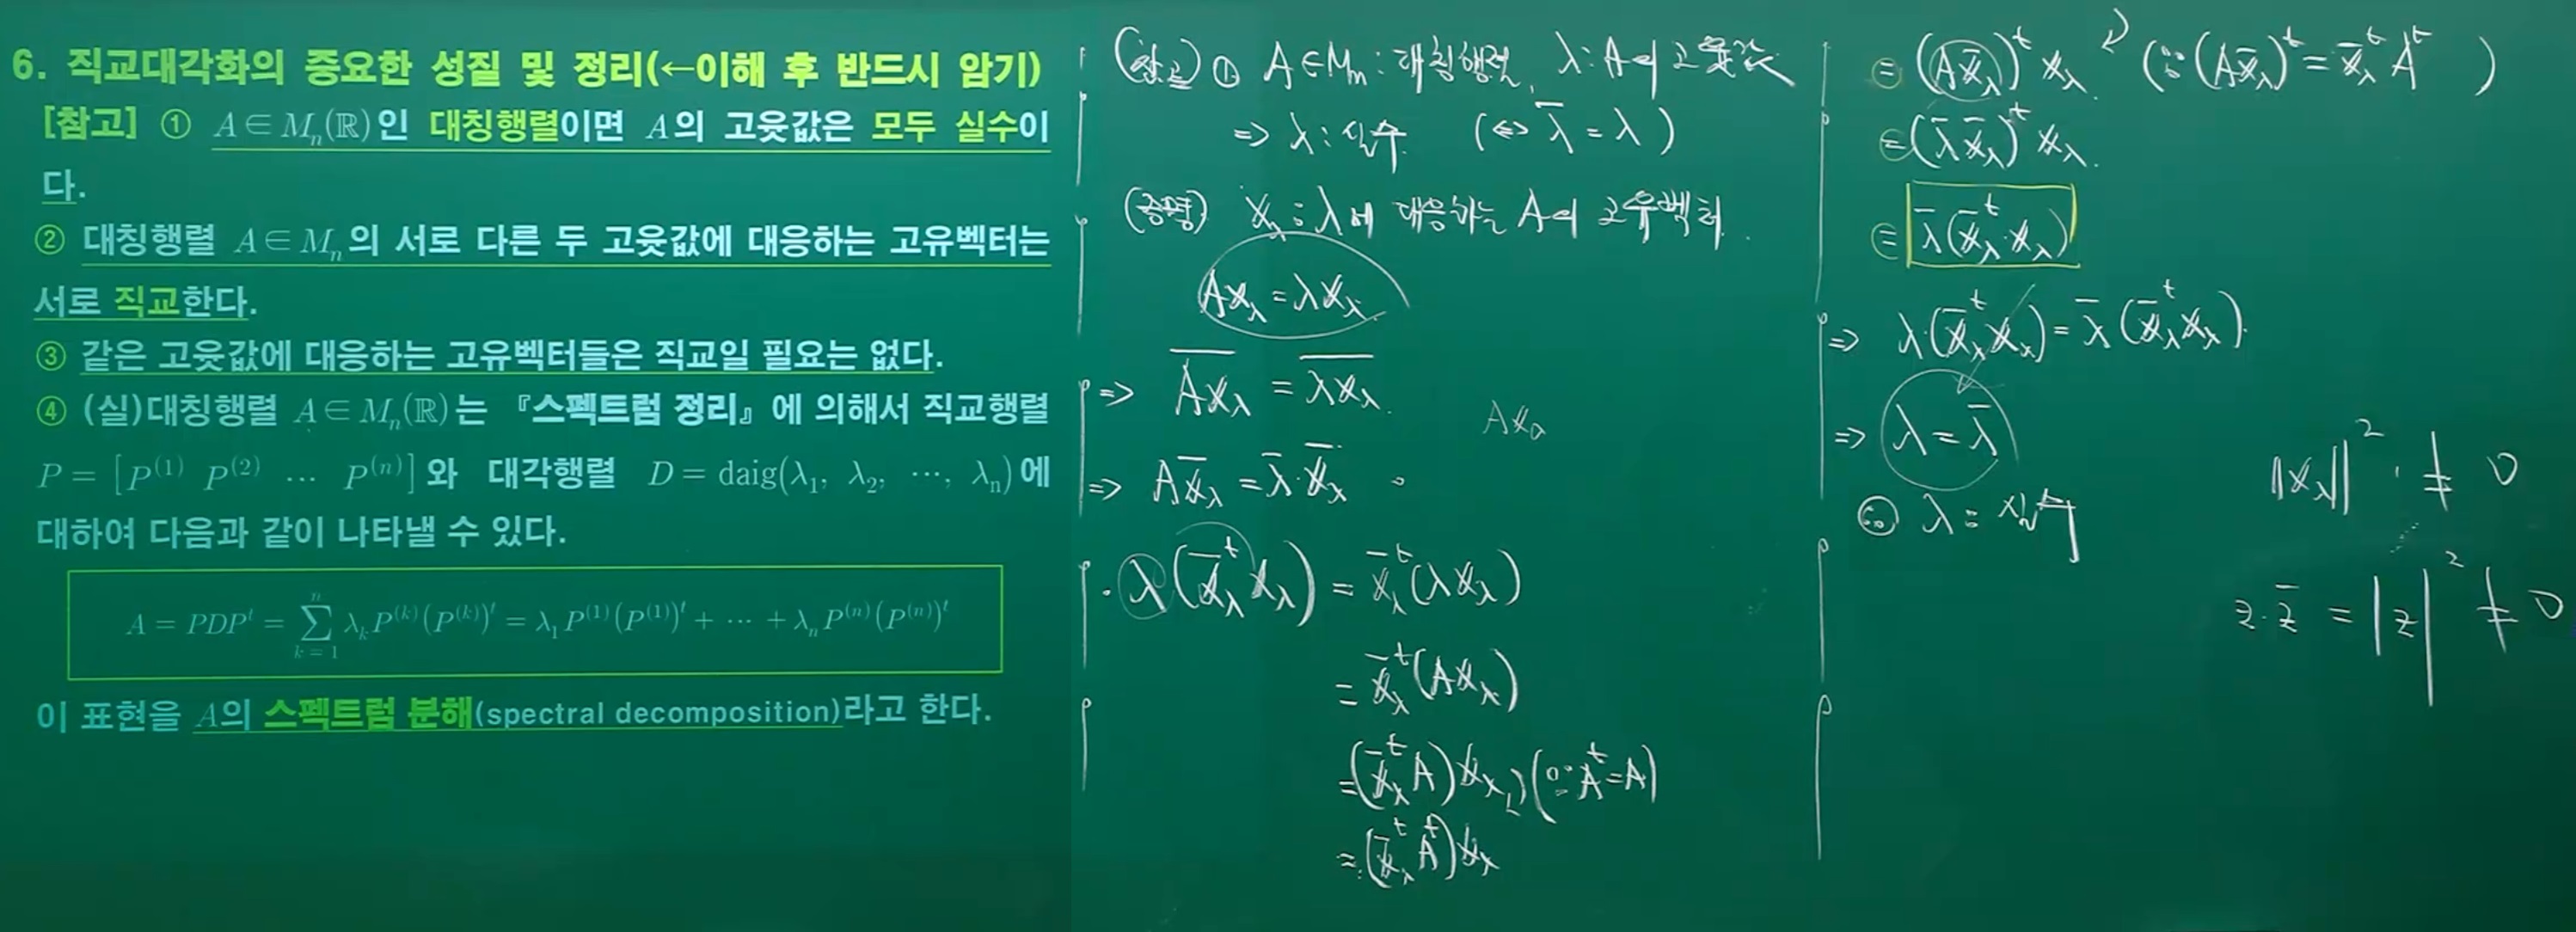 6. 직교대각화의 중요한 성질 및 정리(←이해 후 반드시 암기)
[참고] ① A∈Mₙ(ℝ)인 대칭행렬이면 A의 고윳값은 모두 실수이
다.
② 대칭행렬 A∈Mₙ의 서로 다른 두 고윳값에 대응하는 고유벡터는
서로 직교한다.
③ 같은 고윳값에 대응하는 고유벡터들은 직교일 필요는 없다.
④ (실)대칭행렬 A∈Mₙ(ℝ)는 『스펙트럼 정리』에 의해서 직교행렬
P = [P⁽¹⁾ P⁽²⁾ ⋯ P⁽ⁿ⁾]와 대각행렬 D = daig(λ₁, λ₂, ⋯, λₙ)에
대하여 다음과 같이 나타낼 수 있다.
A = PDPᵗ = ∑ₖ₌₁ⁿ λₖP⁽ᵏ⁾(P⁽ᵏ⁾)ᵗ = λ₁P⁽¹⁾(P⁽¹⁾)ᵗ + ⋯ + λₙP⁽ⁿ⁾(P⁽ⁿ⁾)ᵗ
이 표현을 A의 스펙트럼 분해(spectral decomposition)라고 한다.
(참고) ① A∈Mₙ : 대칭행렬, λ : A의 고윳값
⇒ λ : 실수 (⇔ λ̄ = λ)
(증명) x_λ : λ에 대응하는 A의 고유벡터.
Ax_λ = λx_λ
⇒ \overline{Ax_λ} = \overline{λx_λ}.
Ax
⇒ Ax̄_λ = λ̄·x̄_λ
· λ(x̄_λᵗ x_λ) = x̄_λᵗ(λx_λ)
= x̄_λᵗ(Ax_λ)
= (x̄_λᵗA)x_λ (∵ Aᵗ=A)
= (x̄_λᵗAᵗ)x_λ
= (Ax̄_λ)ᵗ x_λ (∵ (Ax̄_λ)ᵗ = x̄_λᵗAᵗ)
= (λ̄ x̄_λ)ᵗ x_λ.
= λ̄(x̄_λᵗ·x_λ)
⇒ λ·(x̄_λᵗ x_λ) = λ̄(x̄_λᵗ x_λ).
⇒ λ = λ̄
∴ λ : 실수
‖x_λ‖² ≠ 0
z·z̄ = |z|² ≠ 0